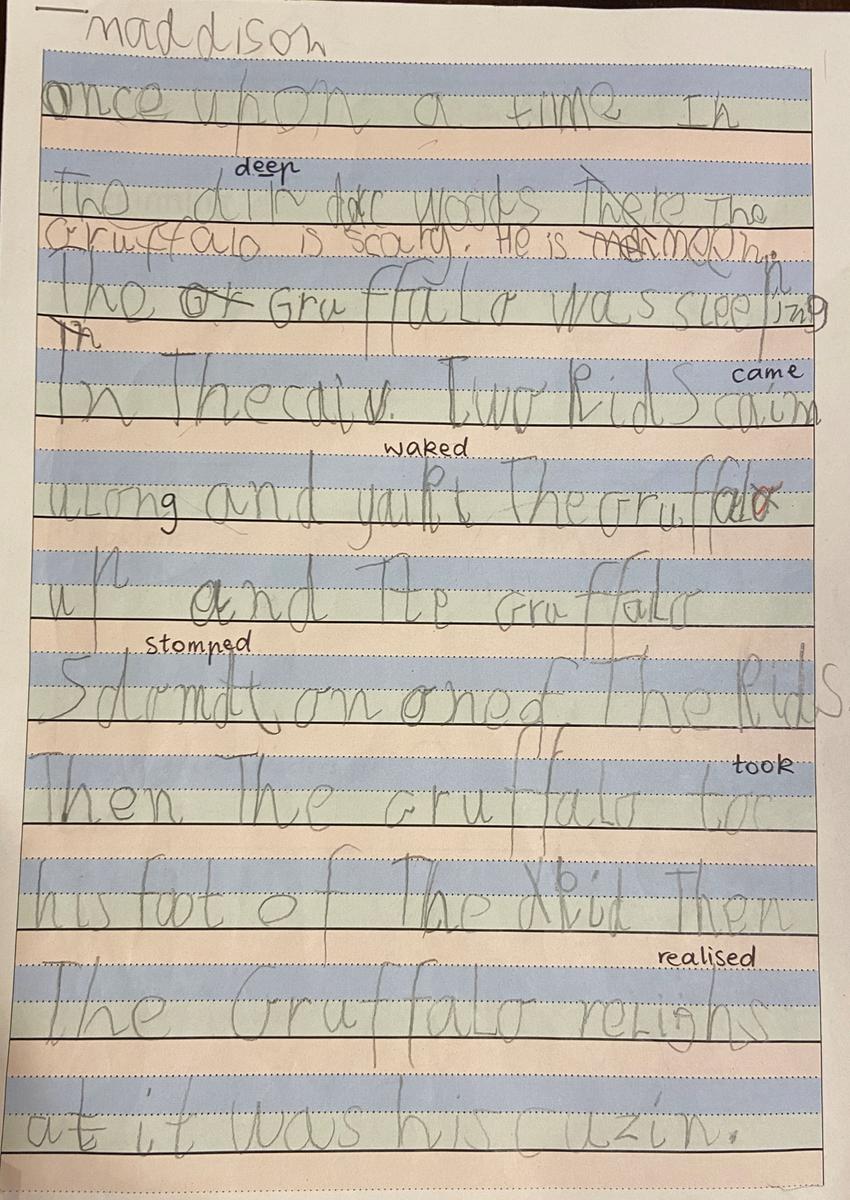 maddison
once upon a time In
deep
The dip darc woods There The
Gruffalo is scary. He is mean.
The Gruffalo was sleeping
In
In The caiv. Two Kids caim
came
waked
along and yaikt The Gruffalo
up and The Gruffalo
stomped
Sdomdt on one of The Kids
took
Then The Gruffalo toc
his foot of The Kid Then
realised
The Gruffalo relighs
at it was his cuzin.